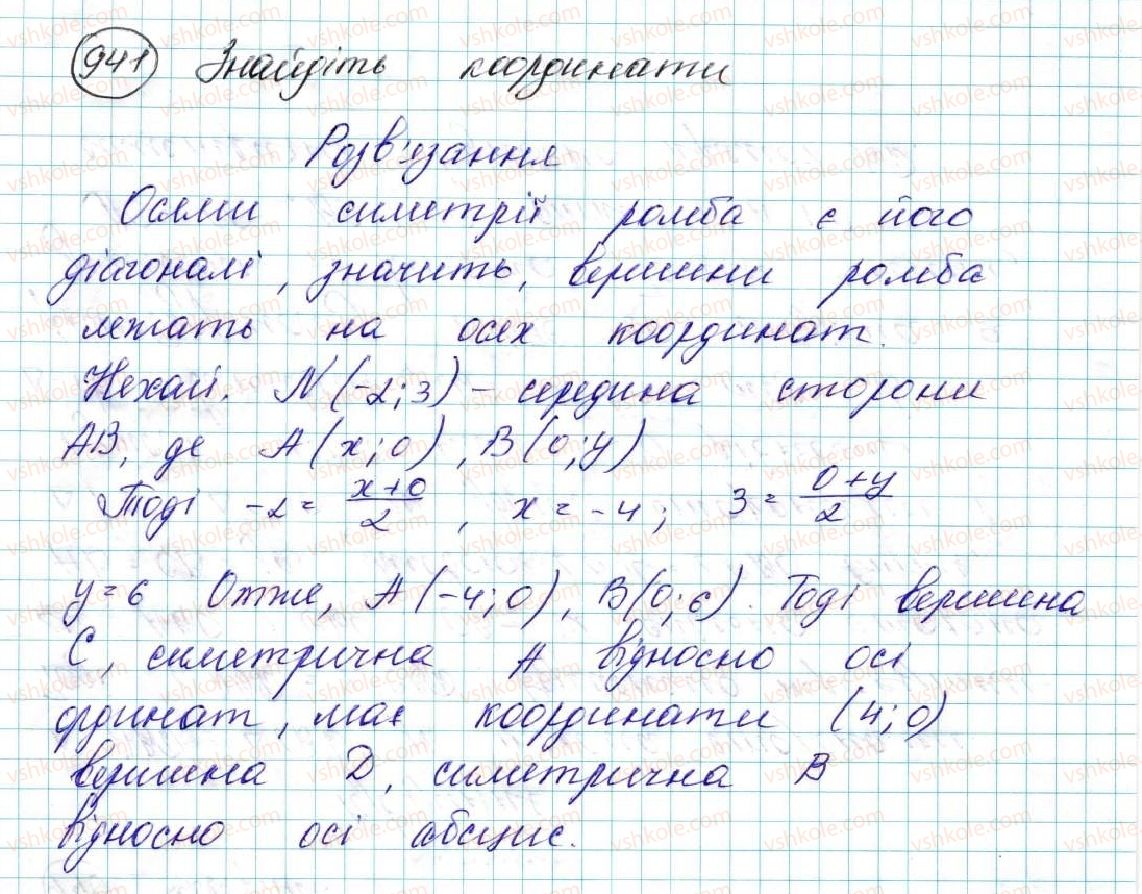 941 Знайдіть координати
Розв'язання
Осями симетрії ромба є його
діагоналі, значить, вершини ромба
лежать на осях координат.
Нехай. N(-2;3) - середина сторони
AB, де A(x;0), B(0;y)
Тоді -2 = \frac{x+0}{2}, x = -4; 3 = \frac{0+y}{2}
y=6 Отже, A(-4;0), B(0;6). Тоді вершина
C, симетрична A відносно осі
ординат, має координати (4;0)
вершина D, симетрична B
відносно осі абсцис.